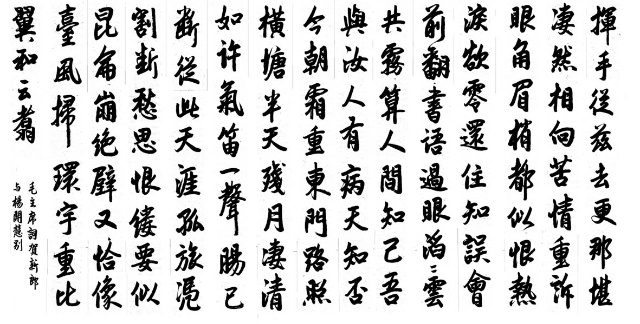 揮手從茲去更那堪
凄然相向苦情重訴
眼角眉梢都似恨熱
淚欲零還住知誤會
前翻書語過眼滔〻雲
共霧算人間知己吾
與汝人有病天知否
今朝霜重東門路照
橫塘半天殘月凄清
如许氣笛一聲腸已
斷從此天涯孤旅憑
割斷愁思恨縷要似
昆侖崩絕壁又恰像
臺風掃環宇重比
翼和云翥
毛主席詞賀新郎
与楊開慧別